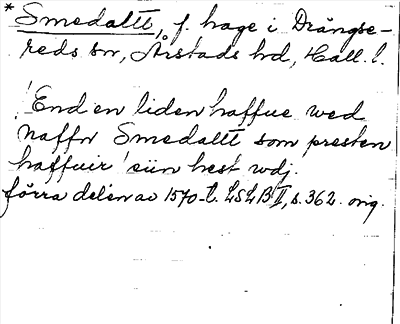 * Smedaltt, f. hage i Drängse-
reds sn, Årstads hd, Hall. l.
'End en liden haffue wed
naffn Smedaltt som presten
haffuir siin hest wdj.
förra delen av 1570-t. LSLB II, s. 362. orig.